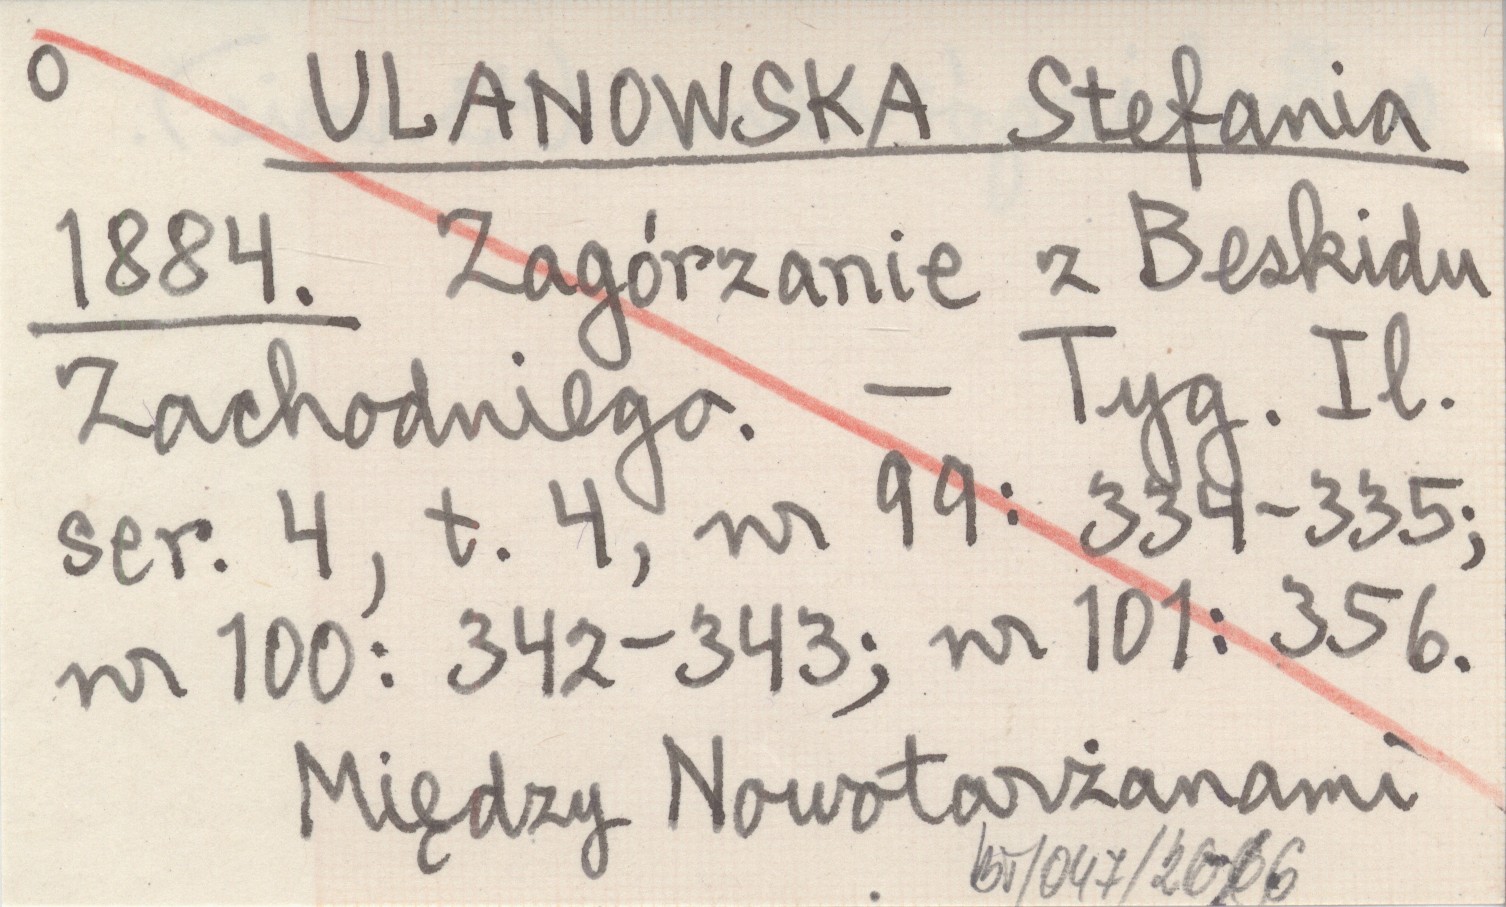 o ULANOWSKA Stefania
1884. Zagórzanie z Beskidu
Zachodniego. — Tyg. Il.
ser. 4, t. 4, nr 99: 334-335;
nr 100: 342-343; nr 101: 356.
Między Nowotarżanami
/047/2006